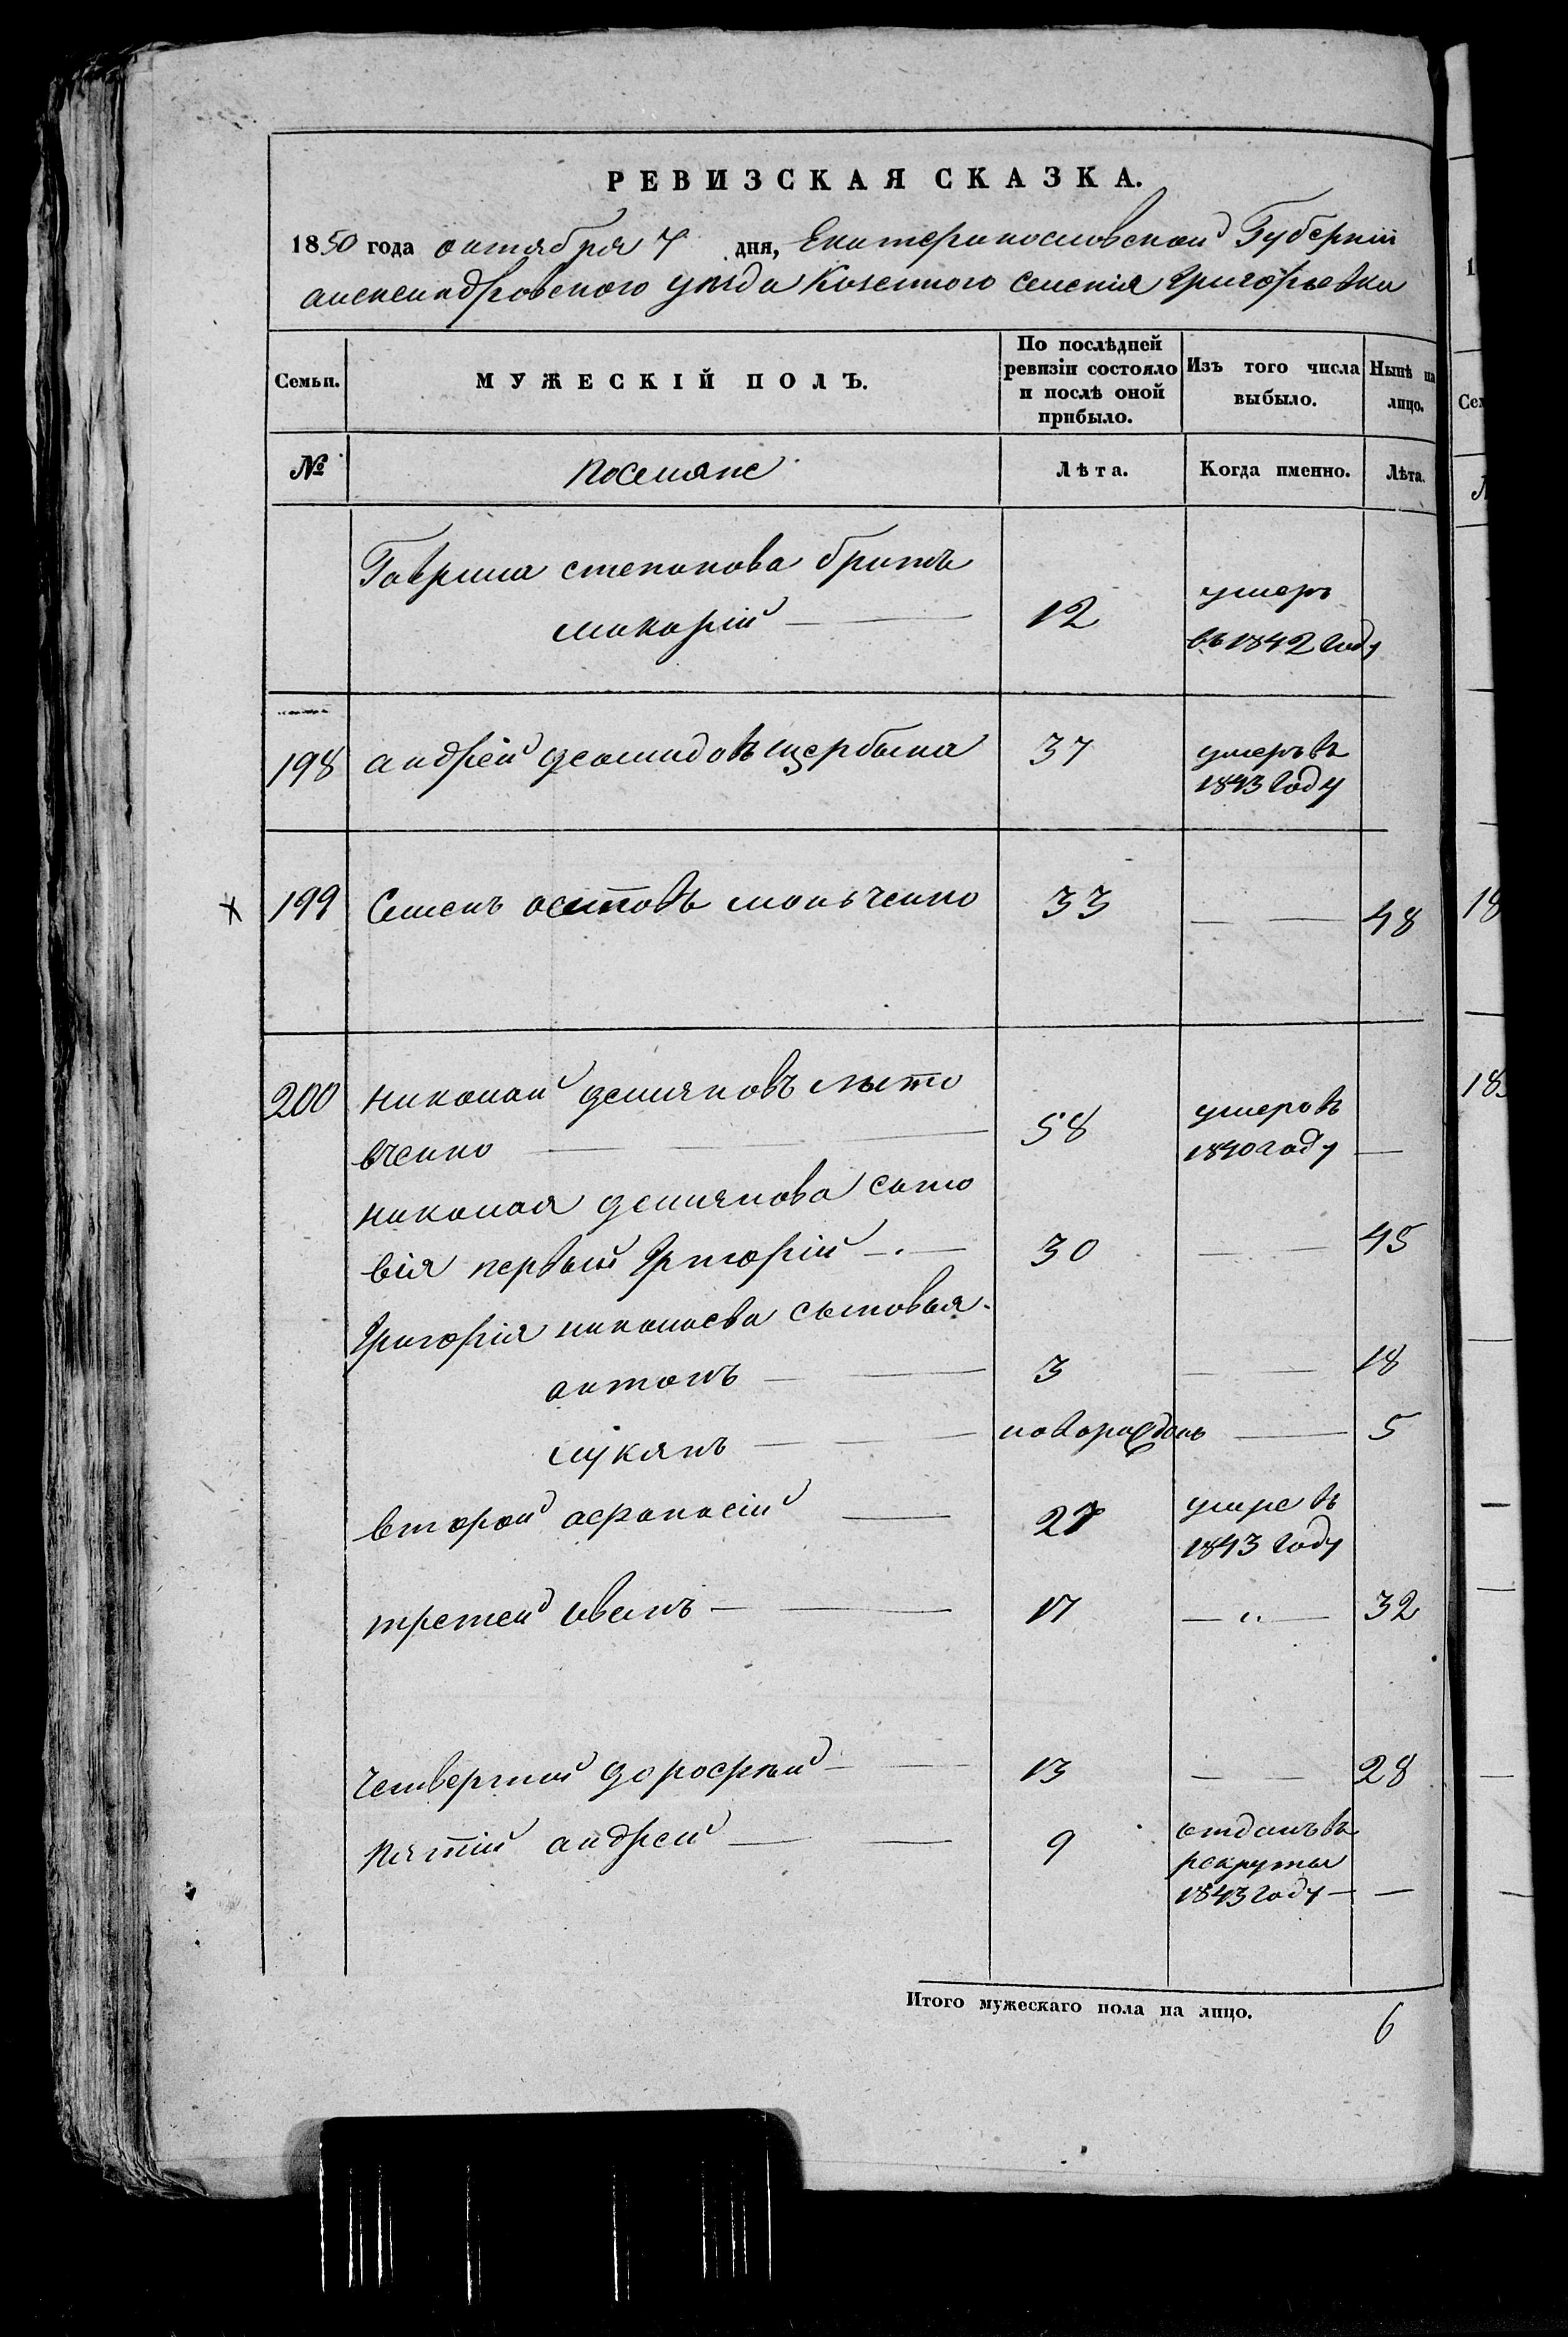 РЕВИЗСКАЯ СКАЗКА.
1850 года октября 7 дня, Екатеринославской Губерніи
александровского уезда Казенного селенія Григорьевки
Семьи. МУЖЕСКІЙ ПОЛЪ. По послѣдней ревизіи состояло и послѣ оной прибыло. Изъ того числа выбыло. Нынѣ на лицо.
№ поселяне Лѣта. Когда именно. Лѣта.
Гаврила степанова братъ
макарій 12 умеръ въ 1842 году
198 андрей демидовъ щербына 37 умеръ въ 1843 году
199 Семенъ 33 48
200 николай демяновъ
вченко 58 умеръ въ 1840 году
николая демянова сыно
вія первый Григорій 30 45
Григорія николаева сыновья
антонъ 3 18
лукянъ новорожденъ 5
второй афанасій 27 умре въ 1843 году
третей иванъ 17 32
четвертий дорофѣй 13 28
пятій андрей 9 отданъ въ рекруты 1843 году
Итого мужескаго пола на лицо. 6